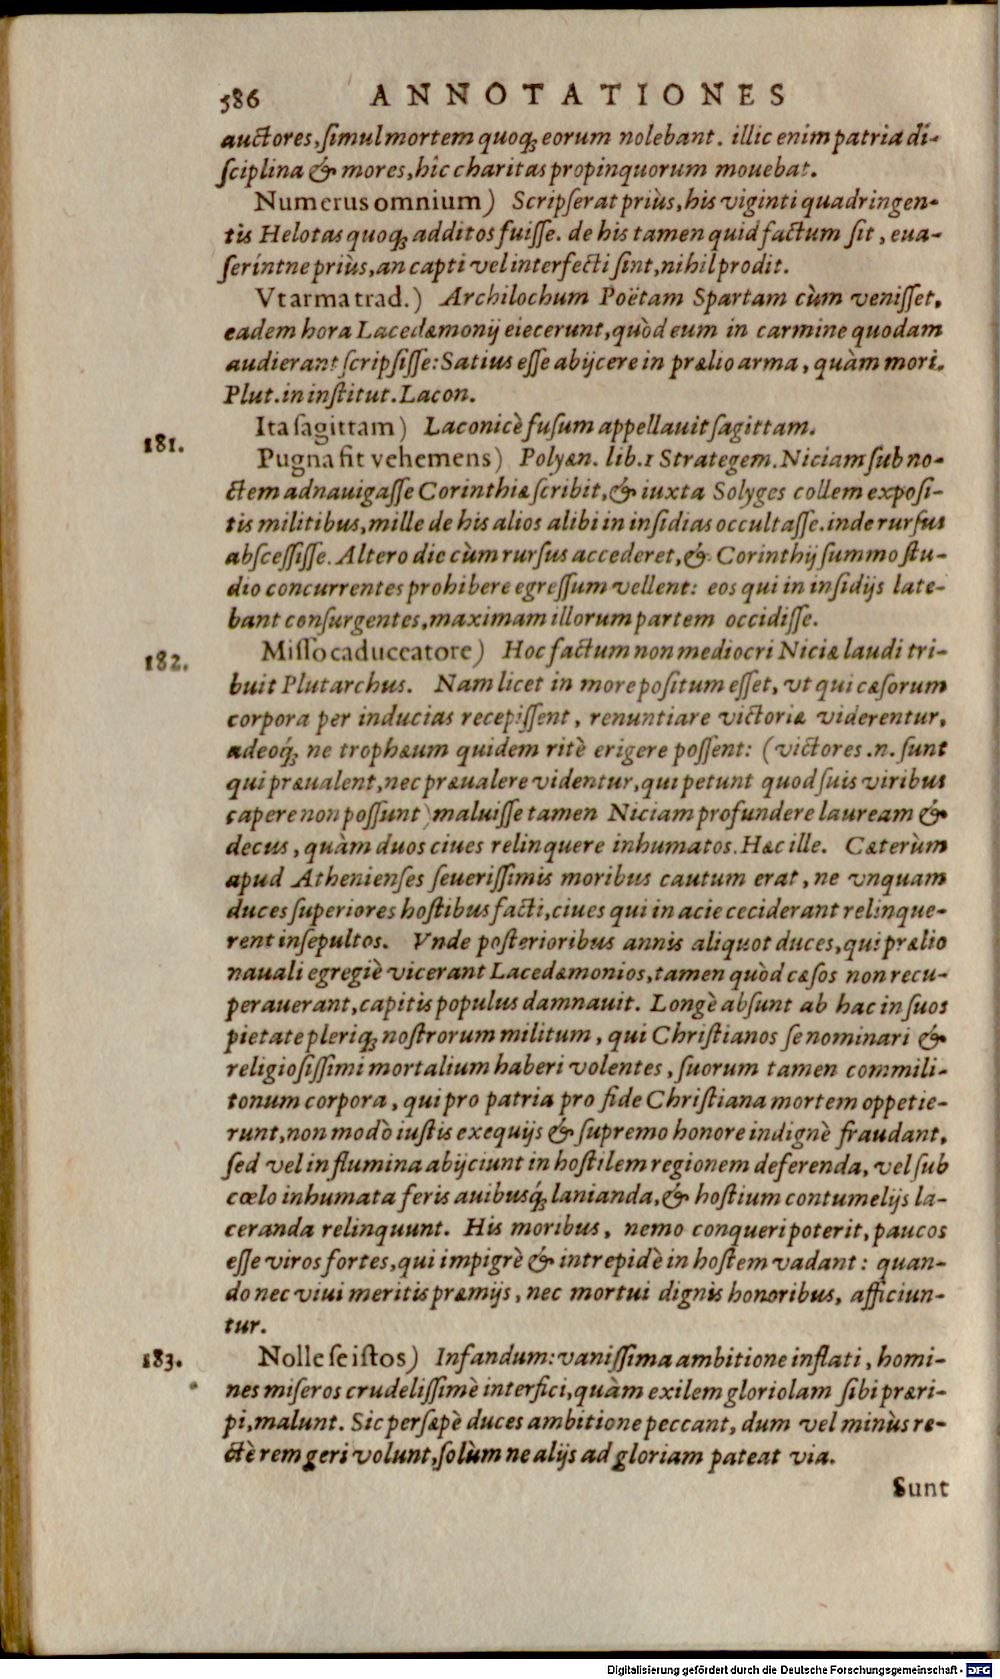 586 ANNOTATIONES
auctores, ſimul mortem quoq; eorum nolebant. illic enim patria di-
ſciplina & mores, hîc charitas propinquorum mouebat.
Numerus omnium) Scripſerat priùs, his viginti quadringen-
tis Helotas quoq; additos fuiſſe. de his tamen quid factum ſit, eua-
ſerintne priùs, an capti vel interfecti ſint, nihil prodit.
Vt arma trad.) Archilochum Poëtam Spartam cùm veniſſet,
eadem hora Lacedæmonij eiecerunt, quòd eum in carmine quodam
audierant ſcripſiſſe: Satius eſſe abijcere in prælio arma, quàm mori.
Plut. in inſtitut. Lacon.
Ita ſagittam) Laconicè fuſum appellauit ſagittam.
181.
Pugna fit vehemens) Polyæn. lib.1 Strategem. Niciam ſub no-
ctem adnauigaſſe Corinthiæ ſcribit, & iuxta Solyges collem expoſi-
tis militibus, mille de his alios alibi in inſidias occultaſſe. inde rurſus
abſceſſiſſe. Altero die cùm rurſus accederet, & Corinthij ſummo ſtu-
dio concurrentes prohibere egreſſum vellent: eos qui in inſidijs late-
bant conſurgentes, maximam illorum partem occidiſſe.
182.
Miſſo caduceatore) Hoc factum non mediocri Niciæ laudi tri-
buit Plutarchus. Nam licet in more poſitum eſſet, vt qui cæſorum
corpora per inducias recepiſſent, renuntiare victoriæ viderentur,
adeoq́; ne trophæum quidem ritè erigere poſſent: (victores .n. ſunt
qui præualent, nec præualere videntur, qui petunt quod ſuis viribus
capere non poſſunt) maluiſſe tamen Niciam profundere lauream &
decus, quàm duos ciues relinquere inhumatos. Hæc ille. Cæterùm
apud Athenienſes ſeueriſſimis moribus cautum erat, ne vnquam
duces ſuperiores hoſtibus facti, ciues qui in acie ceciderant relinque-
rent inſepultos. Vnde poſterioribus annis aliquot duces, qui prælio
nauali egregiè vicerant Lacedæmonios, tamen quòd cæſos non recu-
perauerant, capitis populus damnauit. Longè abſunt ab hac in ſuos
pietate pleriq; noſtrorum militum, qui Chriſtianos ſe nominari &
religioſiſſimi mortalium haberi volentes, ſuorum tamen commili-
tonum corpora, qui pro patria pro fide Chriſtiana mortem oppetie-
runt, non modò iuſtis exequijs & ſupremo honore indignè fraudant,
ſed vel in flumina abijciunt in hoſtilem regionem deferenda, vel ſub
cœlo inhumata feris auibusq́; lanianda, & hoſtium contumelijs la-
ceranda relinquunt. His moribus, nemo conqueri poterit, paucos
eſſe viros fortes, qui impigrè & intrepidè in hoſtem vadant: quan-
do nec viui meritis præmijs, nec mortui dignis honoribus, afficiun-
tur.
183.
Nolle ſe iſtos) Infandum: vaniſſima ambitione inflati, homi-
nes miſeros crudeliſſimè interfici, quàm exilem gloriolam ſibi præri-
pi, malunt. Sic perſæpè duces ambitione peccant, dum vel minùs re-
ctè rem geri volunt, ſolùm ne alijs ad gloriam pateat via.
Sunt
Digitalisierung gefördert durch die Deutsche Forschungsgemeinschaft - DFG